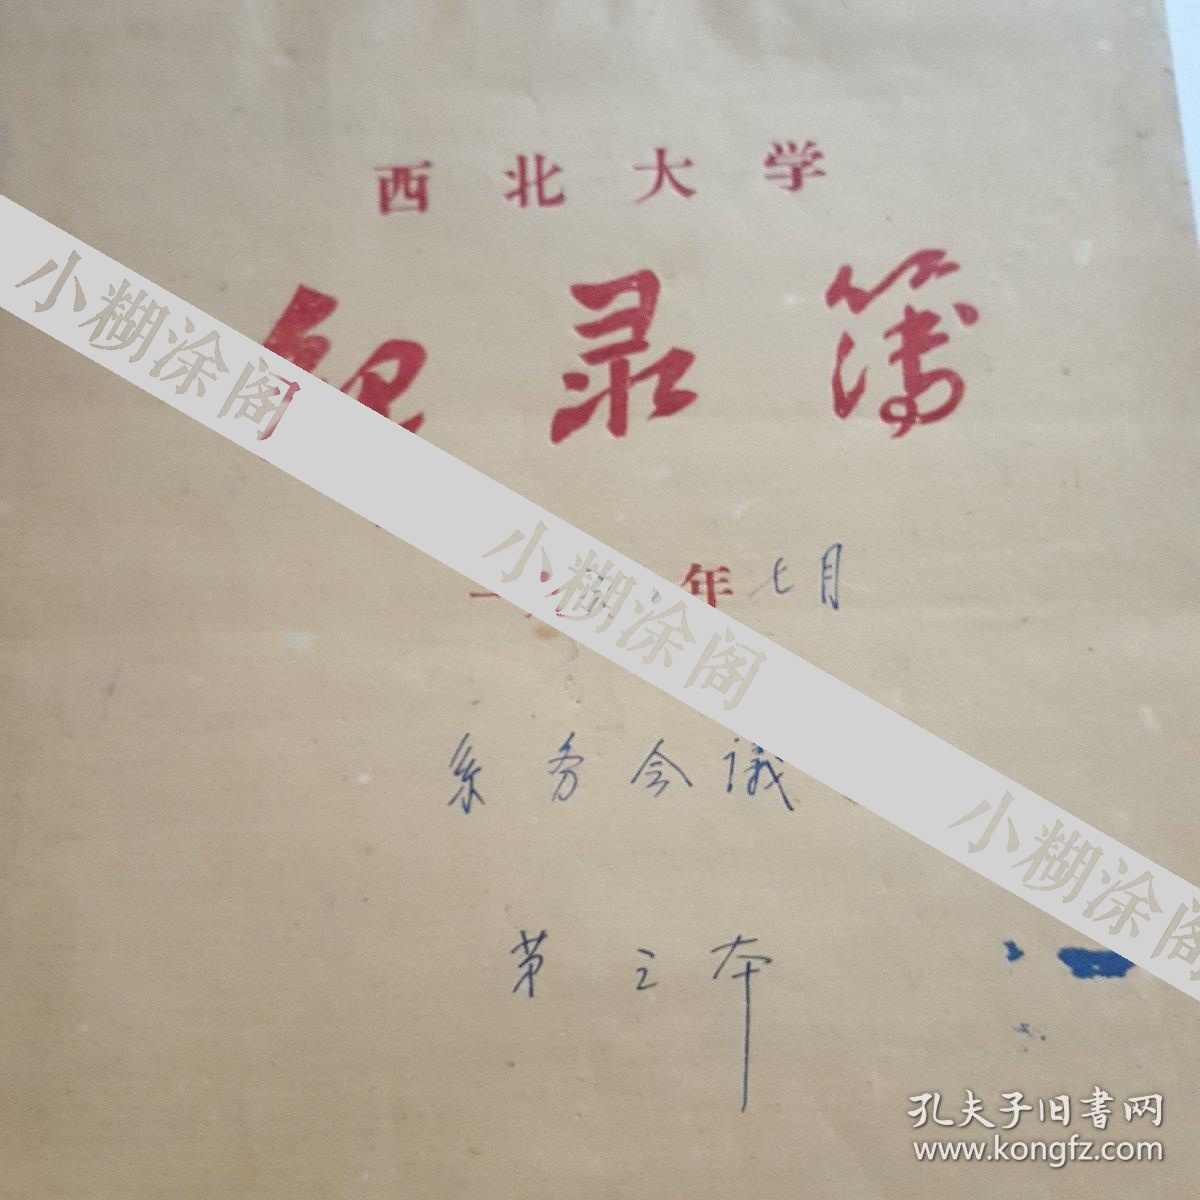 西北大学
纪录簿
小糊涂阁
小糊涂阁
一九 年 七月
系务会议
小糊涂阁
第三本
孔夫子旧書网
www.kongfz.com